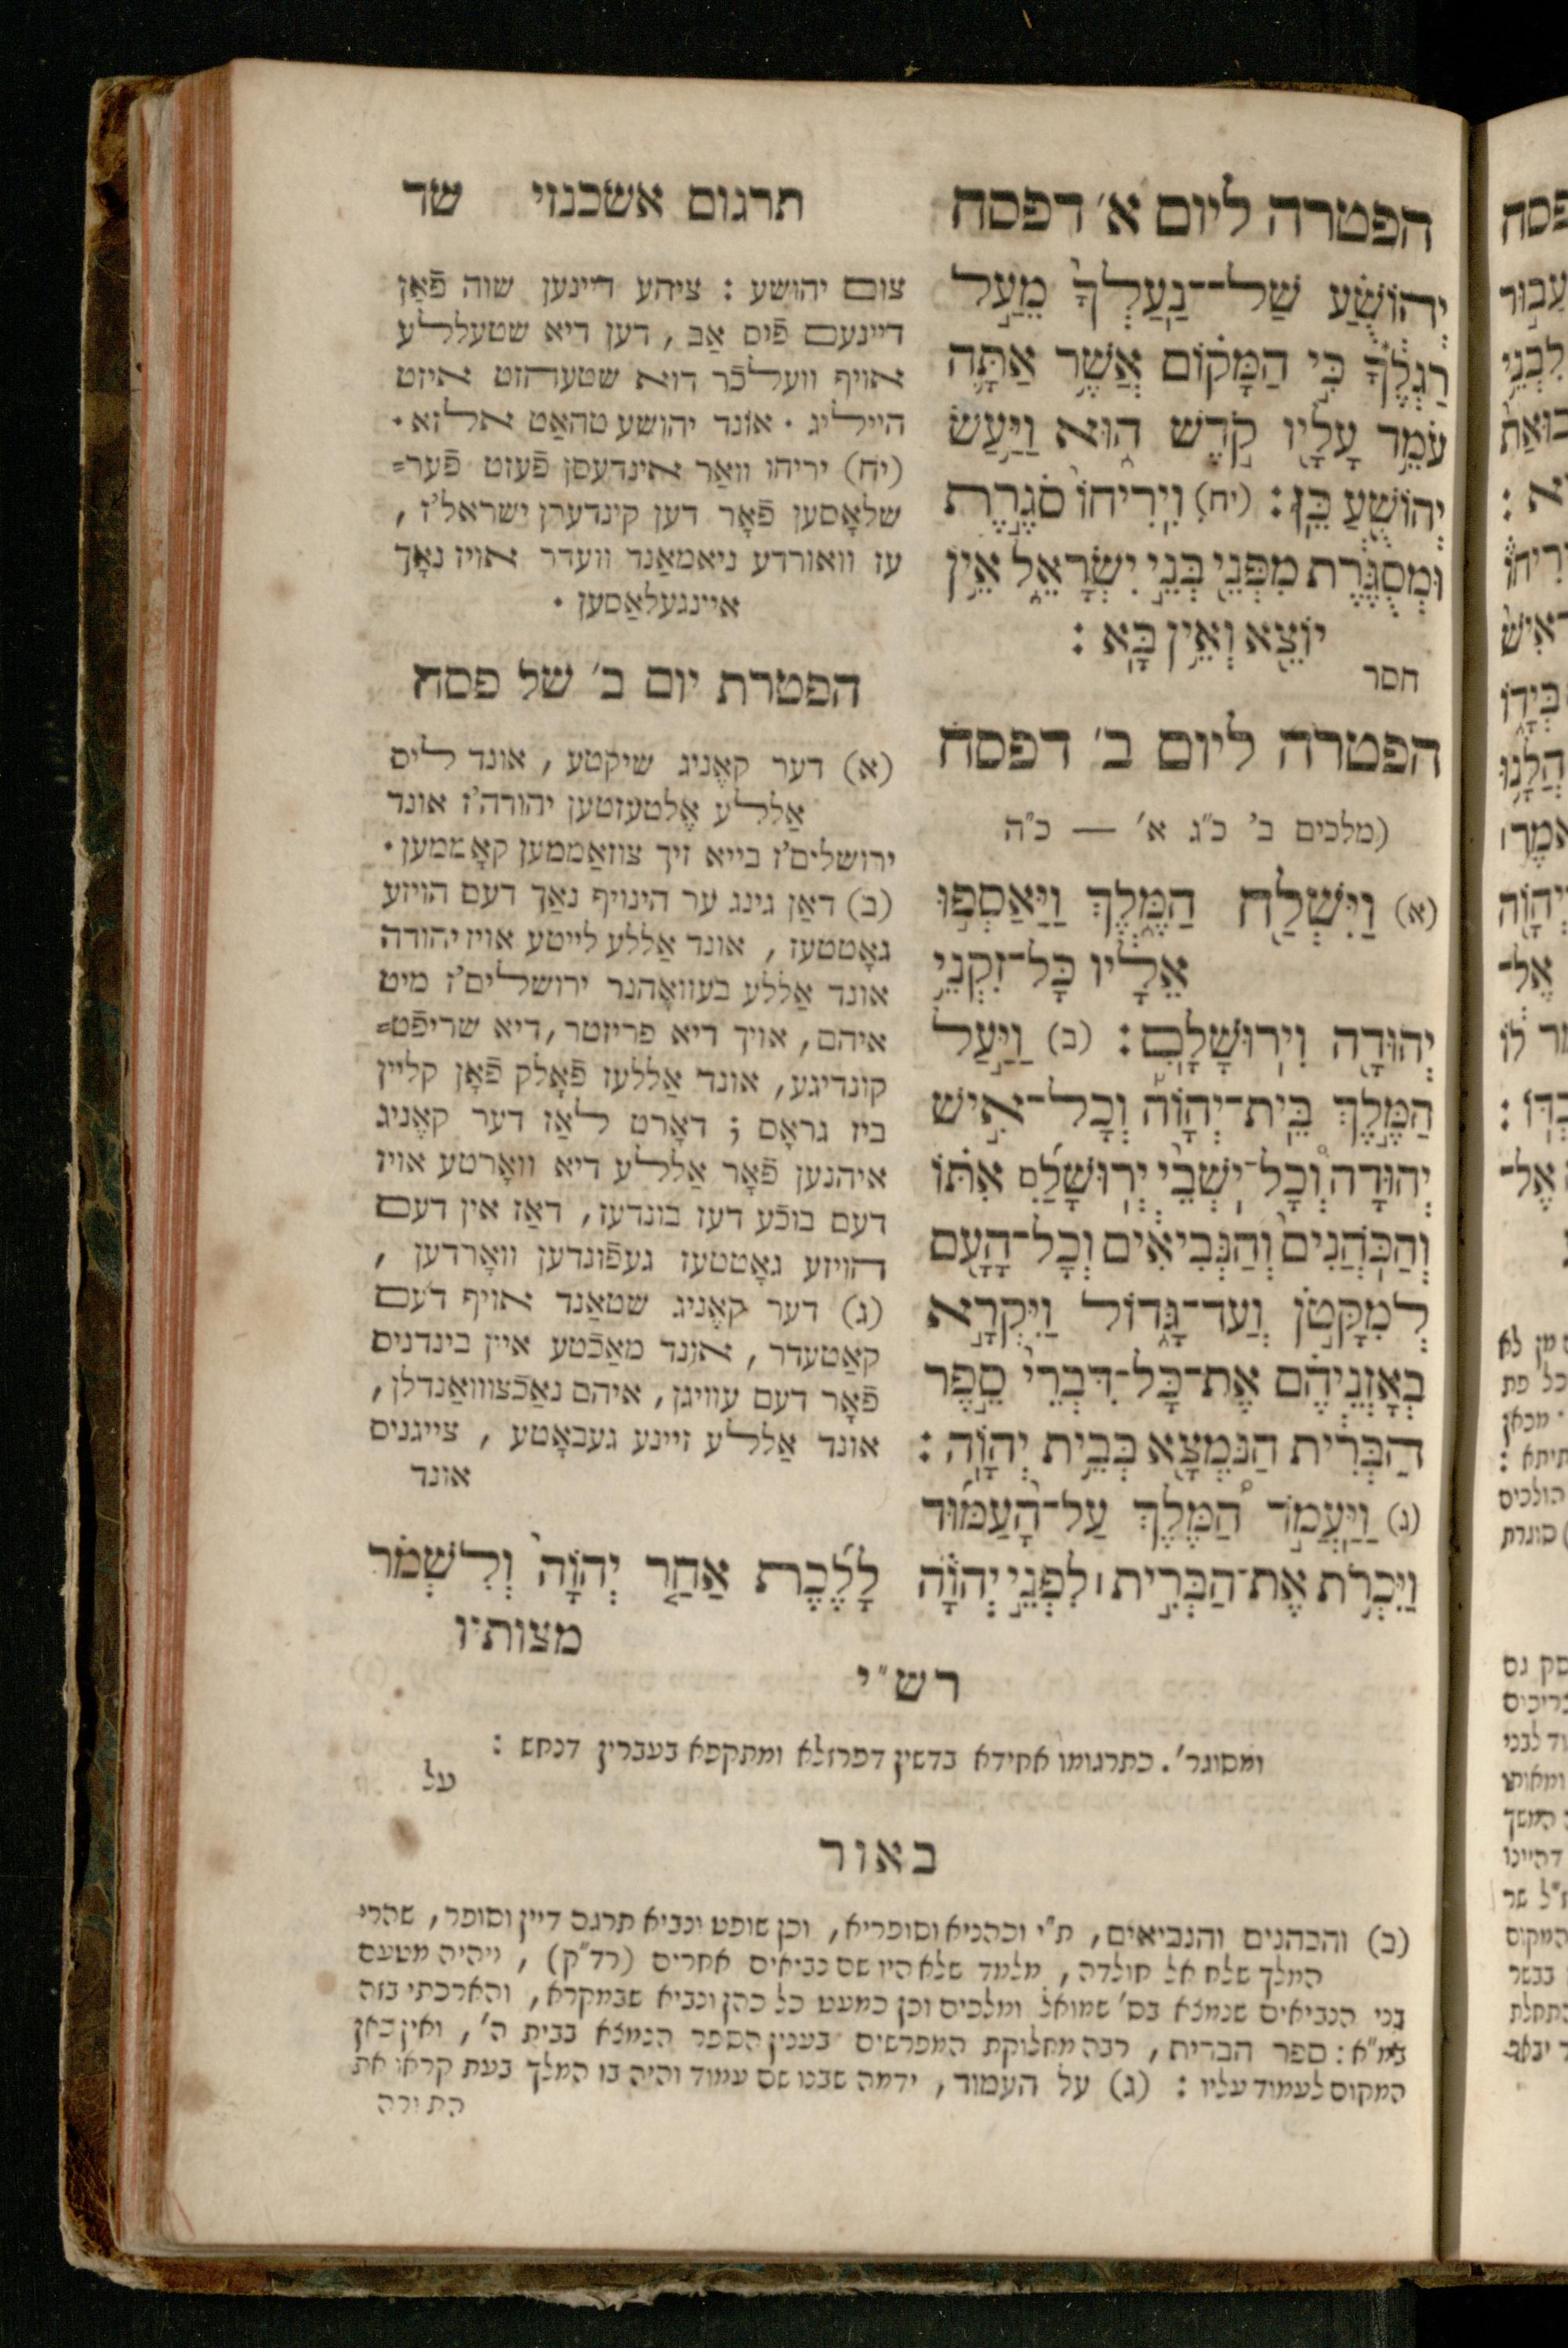 הפטרה ליום א׳ דפסח
יְהוֹשֻׁ֗עַ שַׁל־־נַעַלְךָ֙ מֵעַ֣ל
רַגְלֶ֔ךָ כִּ֣י הַמָּק֗וֹם אֲשֶׁ֥ר אַתָּ֛ה
עֹמֵ֥ד עָלָ֖יו קֹ֣דֶשׁ ה֑וּא וַיַּ֥עַשׂ
יְהוֹשֻׁ֖עַ כֵּֽן׃ (יח) וִֽירִיחוֹ֙ סֹגֶ֣רֶת
וּמְסֻגֶּ֔רֶת מִפְּנֵ֖י בְּנֵ֣י יִשְׂרָאֵ֑ל אֵ֥ין
יוֹצֵ֖א וְאֵ֥ין בָּֽא׃
חסר
הפטרה ליום ב׳ דפסח
(מלכים ב׳ כ״ג א׳ — כ״ה
(א) וַיִּשְׁלַ֖ח הַמֶּ֑לֶךְ וַיַּאַסְפ֣וּ
אֵלָ֔יו כָּל־זִקְנֵ֥י
יְהוּדָ֖ה וִירֽוּשָׁלִָֽם׃ (ב) וַיַּ֣עַל
הַמֶּ֣לֶךְ בֵּית־יְהוָ֡ה וְכָל־אִ֣ישׁ
יְהוּדָה֩ וְכָל־יֹשְׁבֵ֨י יְרֽוּשָׁלִַ֜ם אִתּ֗וֹ
וְהַכֹּֽהֲנִים֙ וְהַנְּבִיאִ֔ים וְכָל־הָעָ֖ם
לְמִקָּטֹ֣ן וְעַד־גָּד֑וֹל וַיִּקְרָ֣א
בְאָזְנֵיהֶ֗ם אֶת־כָּל־דִּבְרֵי֙ סֵ֣פֶר
הַבְּרִ֔ית הַנִּמְצָ֖א בְּבֵ֥ית יְהוָֽה׃
(ג) וַיַּעֲמֹ֣ד הַ֠מֶּלֶךְ עַל־הָֽעַמּ֞וּד
וַיִּכְרֹ֥ת אֶֽת־הַבְּרִ֣ית ׀ לִפְנֵ֣י יְהוָ֗ה לָלֶ֜כֶת אַחַ֤ר יְהוָה֙ וְלִשְׁמֹ֨ר
מצותיו
תרגום אשכנזי שד
צום יהושע : ציהע דיינען שוה פֿאָן
דיינעם פֿיס אַב , דען דיא שטעללע
אויף וועלכֿר דוא שטעהזט איזט
הייליג · אונד יהושע טהאַט אלזא ·
(יח) יריחו וואַר אינדעסן פֿעזט פֿער=
שלאָסען פֿאָר דען קינדערן ישראל'ז ,
עז וואורדע ניאמאַנד וועדר אויז נאָך
איינגעלאַסען ·
הפטרת יום ב׳ של פסח
(א) דער קאֶניג שיקטע , אונד ליס
אַללע אֶלטעזטען יהודה'ז אונד
ירושלים'ז בייא זיך צוזאַממען קאָממען ·
(ב) דאַן גינג ער הינויף נאַך דעם הויזע
גאָטטעז , אונד אַללע לייטע אויז יהודה
אונד אַללע בעוואָהנר ירושלים'ז מיט
איהם , אויך דיא פריזטר , דיא שריפֿט=
קונדיגע , אונד אַללעז פֿאָלק פֿאָן קליין
ביז גראָס ; דאָרט לאַז דער קאֶניג
איהנען פֿאָר אַללע דיא וואָרטע אויז
דעם בוכֿע דעז בונדעז , דאַז אין דעם
הויזע גאָטטעז געפֿונדען וואָרדען ,
(ג) דער קאֶניג שטאַנד אויף דעם
קאַטעדר , אונד מאַכֿטע איין בינדניס
פֿאָר דעם עוויגן , איהם נאַכֿצוואַנדלן ,
אונד אַללע זיינע געבאָטע , צייגניס
אונד
רש״י
ומסוגר׳. כתרגומו אחידא בדשין דפרזלא ומתקפא בעברין דנחש :
על
באור
(ב) והכהנים והנביאים, ת״י וכהניא וסופריא, וכן שופט ונביא תרגם דיין וסופר, שהרי
המלך שלח אל חולדה, מלמד שלא היו שם נביאים אחרים (רד״ק) , ויהיה מטעם
בני הנביאים שנמצא בס׳ שמואל ומלכים וכן כמעט כל כהן ונביא שבמקרא, והארכתי בזה
במ״א: ספר הברית, רבה מחלוקת המפרשים בענין הספר הנמצא בבית ה׳, ואין כאן
המקום לעמוד עליו : (ג) על העמוד, ידמה שבנו שם עמוד והיה בו המלך בעת קראו את
התורה